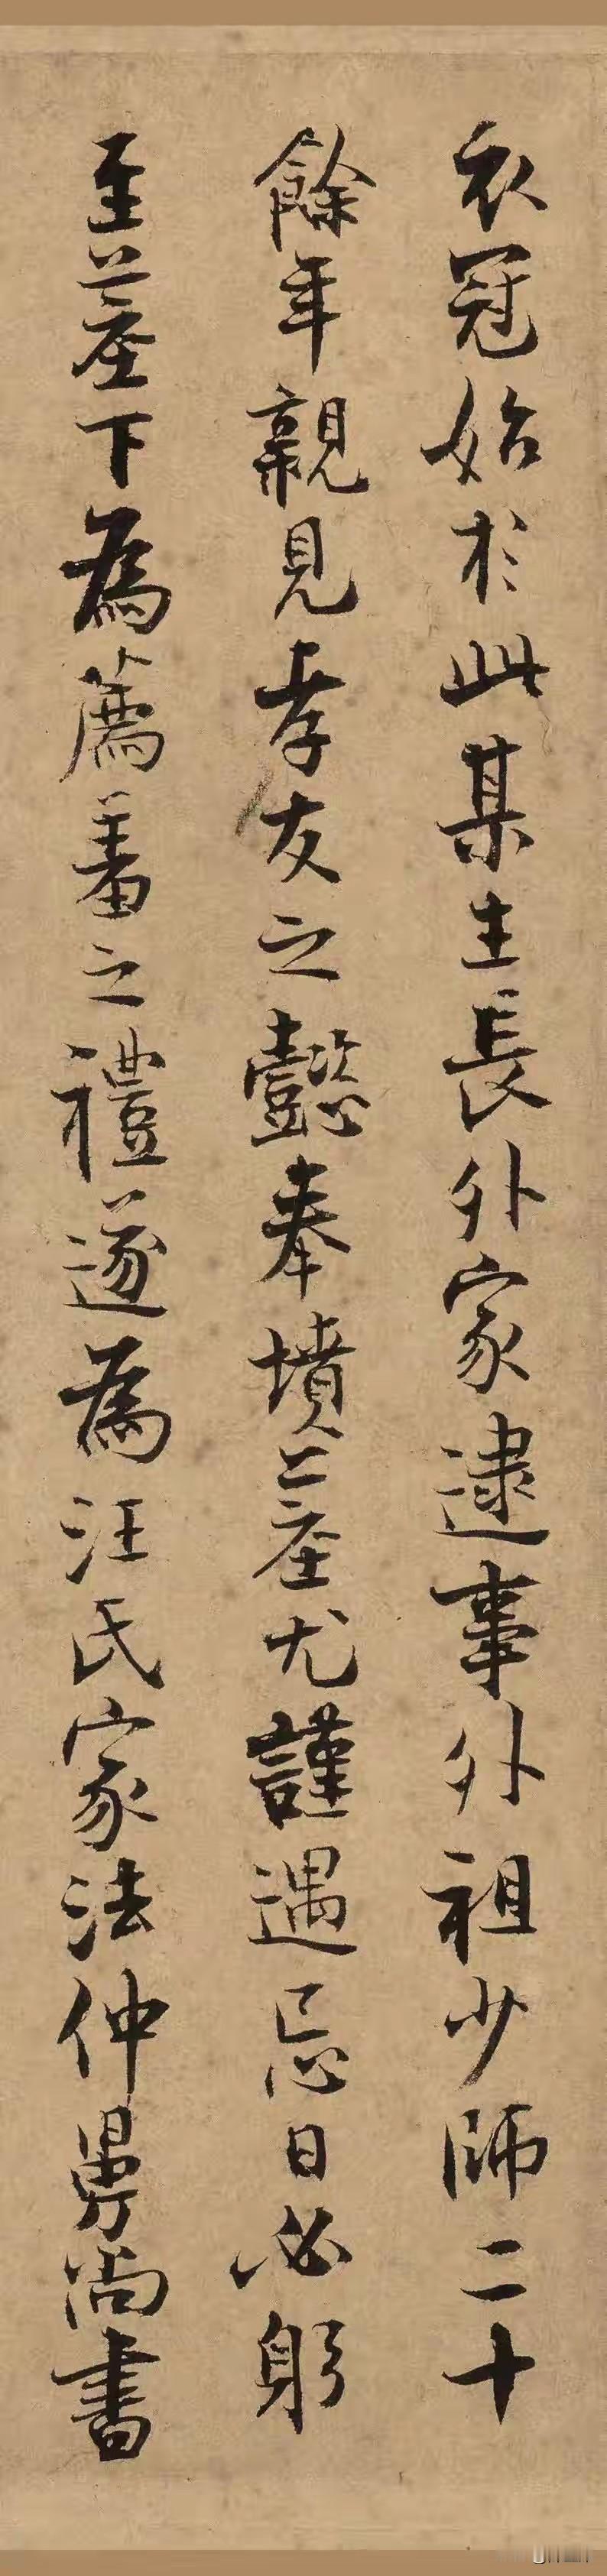 衣冠始於此某生長外家逮事外祖少師二十
餘年親見孝友之懿奉墳墓尤謹遇忌日必躬
至墓下為薦羞之禮遂為汪氏家法仲舅尚書